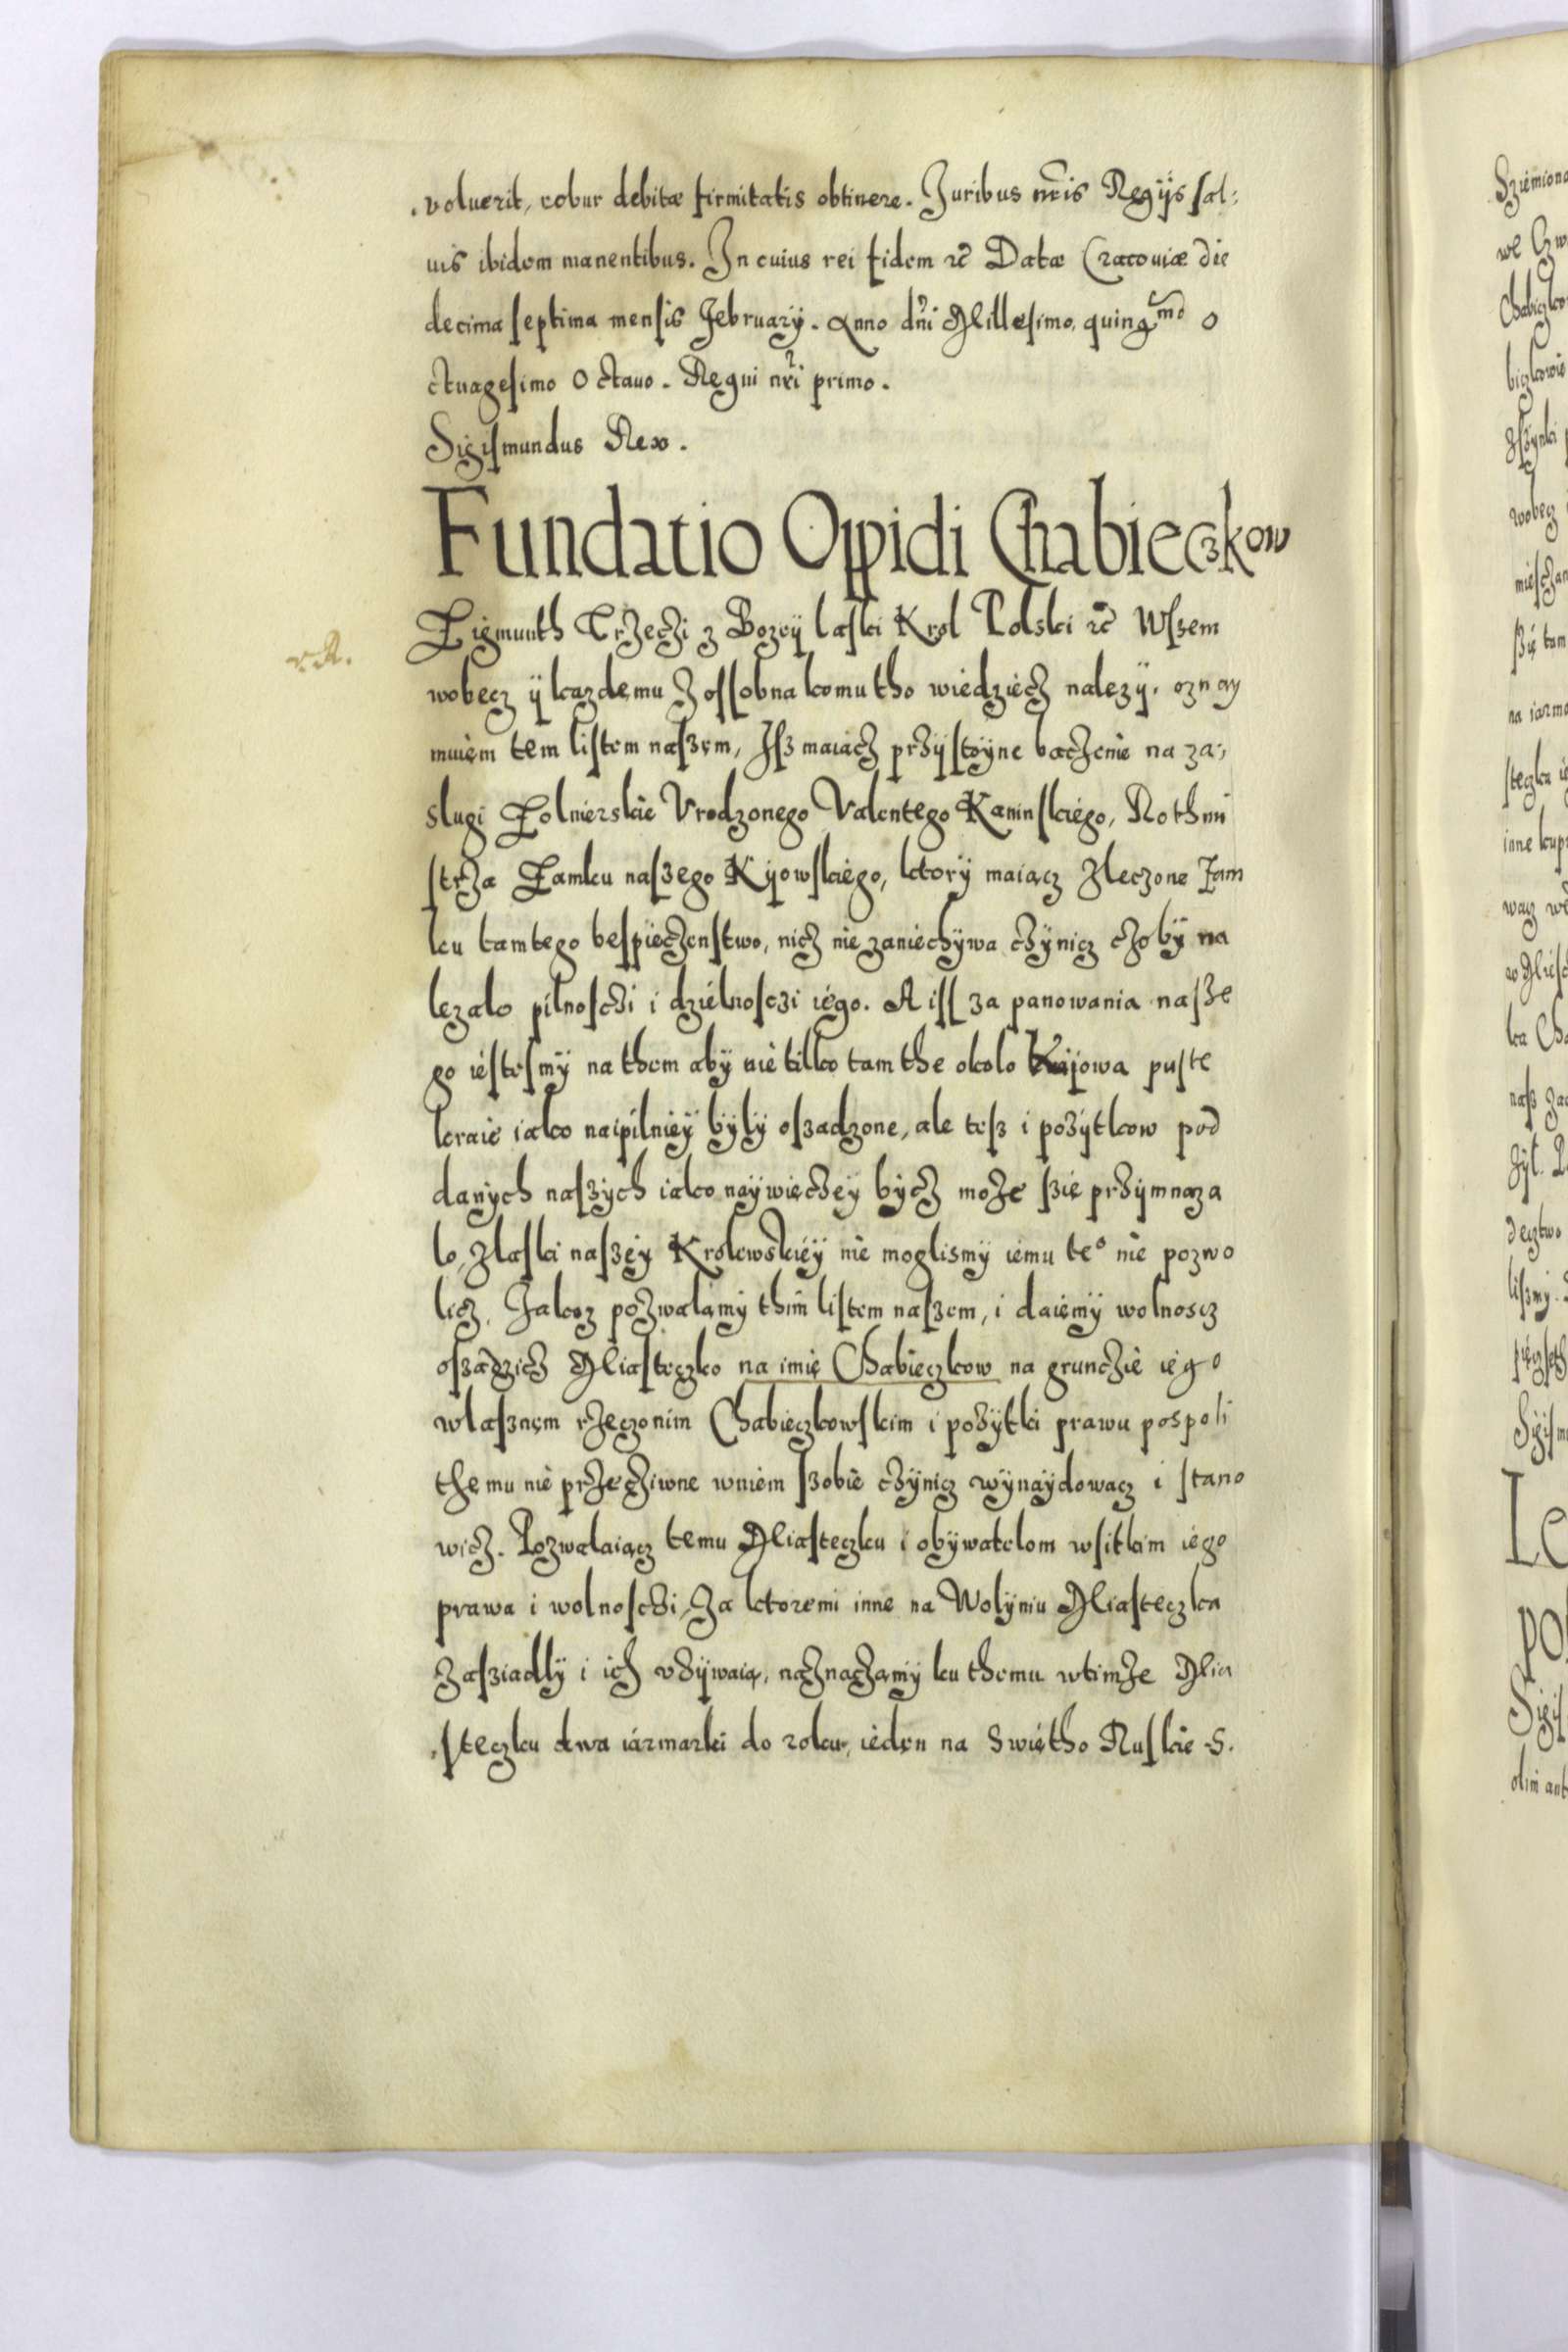 voluerit, robur debitæ firmitatis obtinere. Juribus nr̃is Regÿs sal:
uis ibidem manentibus. In cuius rei fidem ꝛc̃ Datæ Cracouiæ die
decima septima mensis February. Anno dñi Millesimo, quingmo o
ctuagesimo Octauo. Regni nr̃i primo.
Sigismundus Rex.
Fundatio Oppidi Chabieczkow
Zigmunth Trzeczi z Bozey laski Krol Polski ꝛc̃ Wszem
wobecz ÿ kazdemu Zossobna komu tho wiedziecz nalezÿ. oznay
muięm tem listem naszem, Isz maiacz przÿstoÿne baczenie na za:
slugi Zolnierskie Vrodzonego Valentego Kaminskiego, Rothmi
strza Zamku naszego Kÿowskiego, ktorÿ maiącz Zleczone Zam
ku tamtego bespieczenstwo, nicz nie zaniechÿwa czÿnicz czobÿ na
lezalo pilnosczi i dzielnosczi iego. A iss za panowania nasze
go iestesmÿ na them abÿ nie tilko tam the okolo Kijowa puste
kraie iako naipilnieÿ bÿlÿ oszadzone, ale tesz i pozÿtkow pod
danÿch naszÿch iako naÿwięczeÿ bÿcz moze szie przÿmnaza
lo, Zlaski naszeÿ Krolewskieÿ nie moglismÿ iemu te° nie pozwo
licz. Jakosz pozwalamÿ thim listem naszem, i daiemÿ wolnoscz
oszadzicz Miasteczko na imię Chabieczkow na grunczie iego
wlasznęm rzeczonim Chabieczkowskim i pozÿtki prawu pospoli
themu nie przecziwne wniem szobie czÿnicz wÿnaÿdowacz i stano
wicz. Pozwalaiącz temu Miasteczku i obÿwatelom wsitkim iego
prawa i wolnosczi, Za ktoremi inne na Wolÿniu Miasteczka
Zasziadlÿ i ich vzÿwaią, naznaczamÿ ku themu wtimze Mia
steczku dwa iarmarki do roku, ieden na Swiętho Ruskie S.